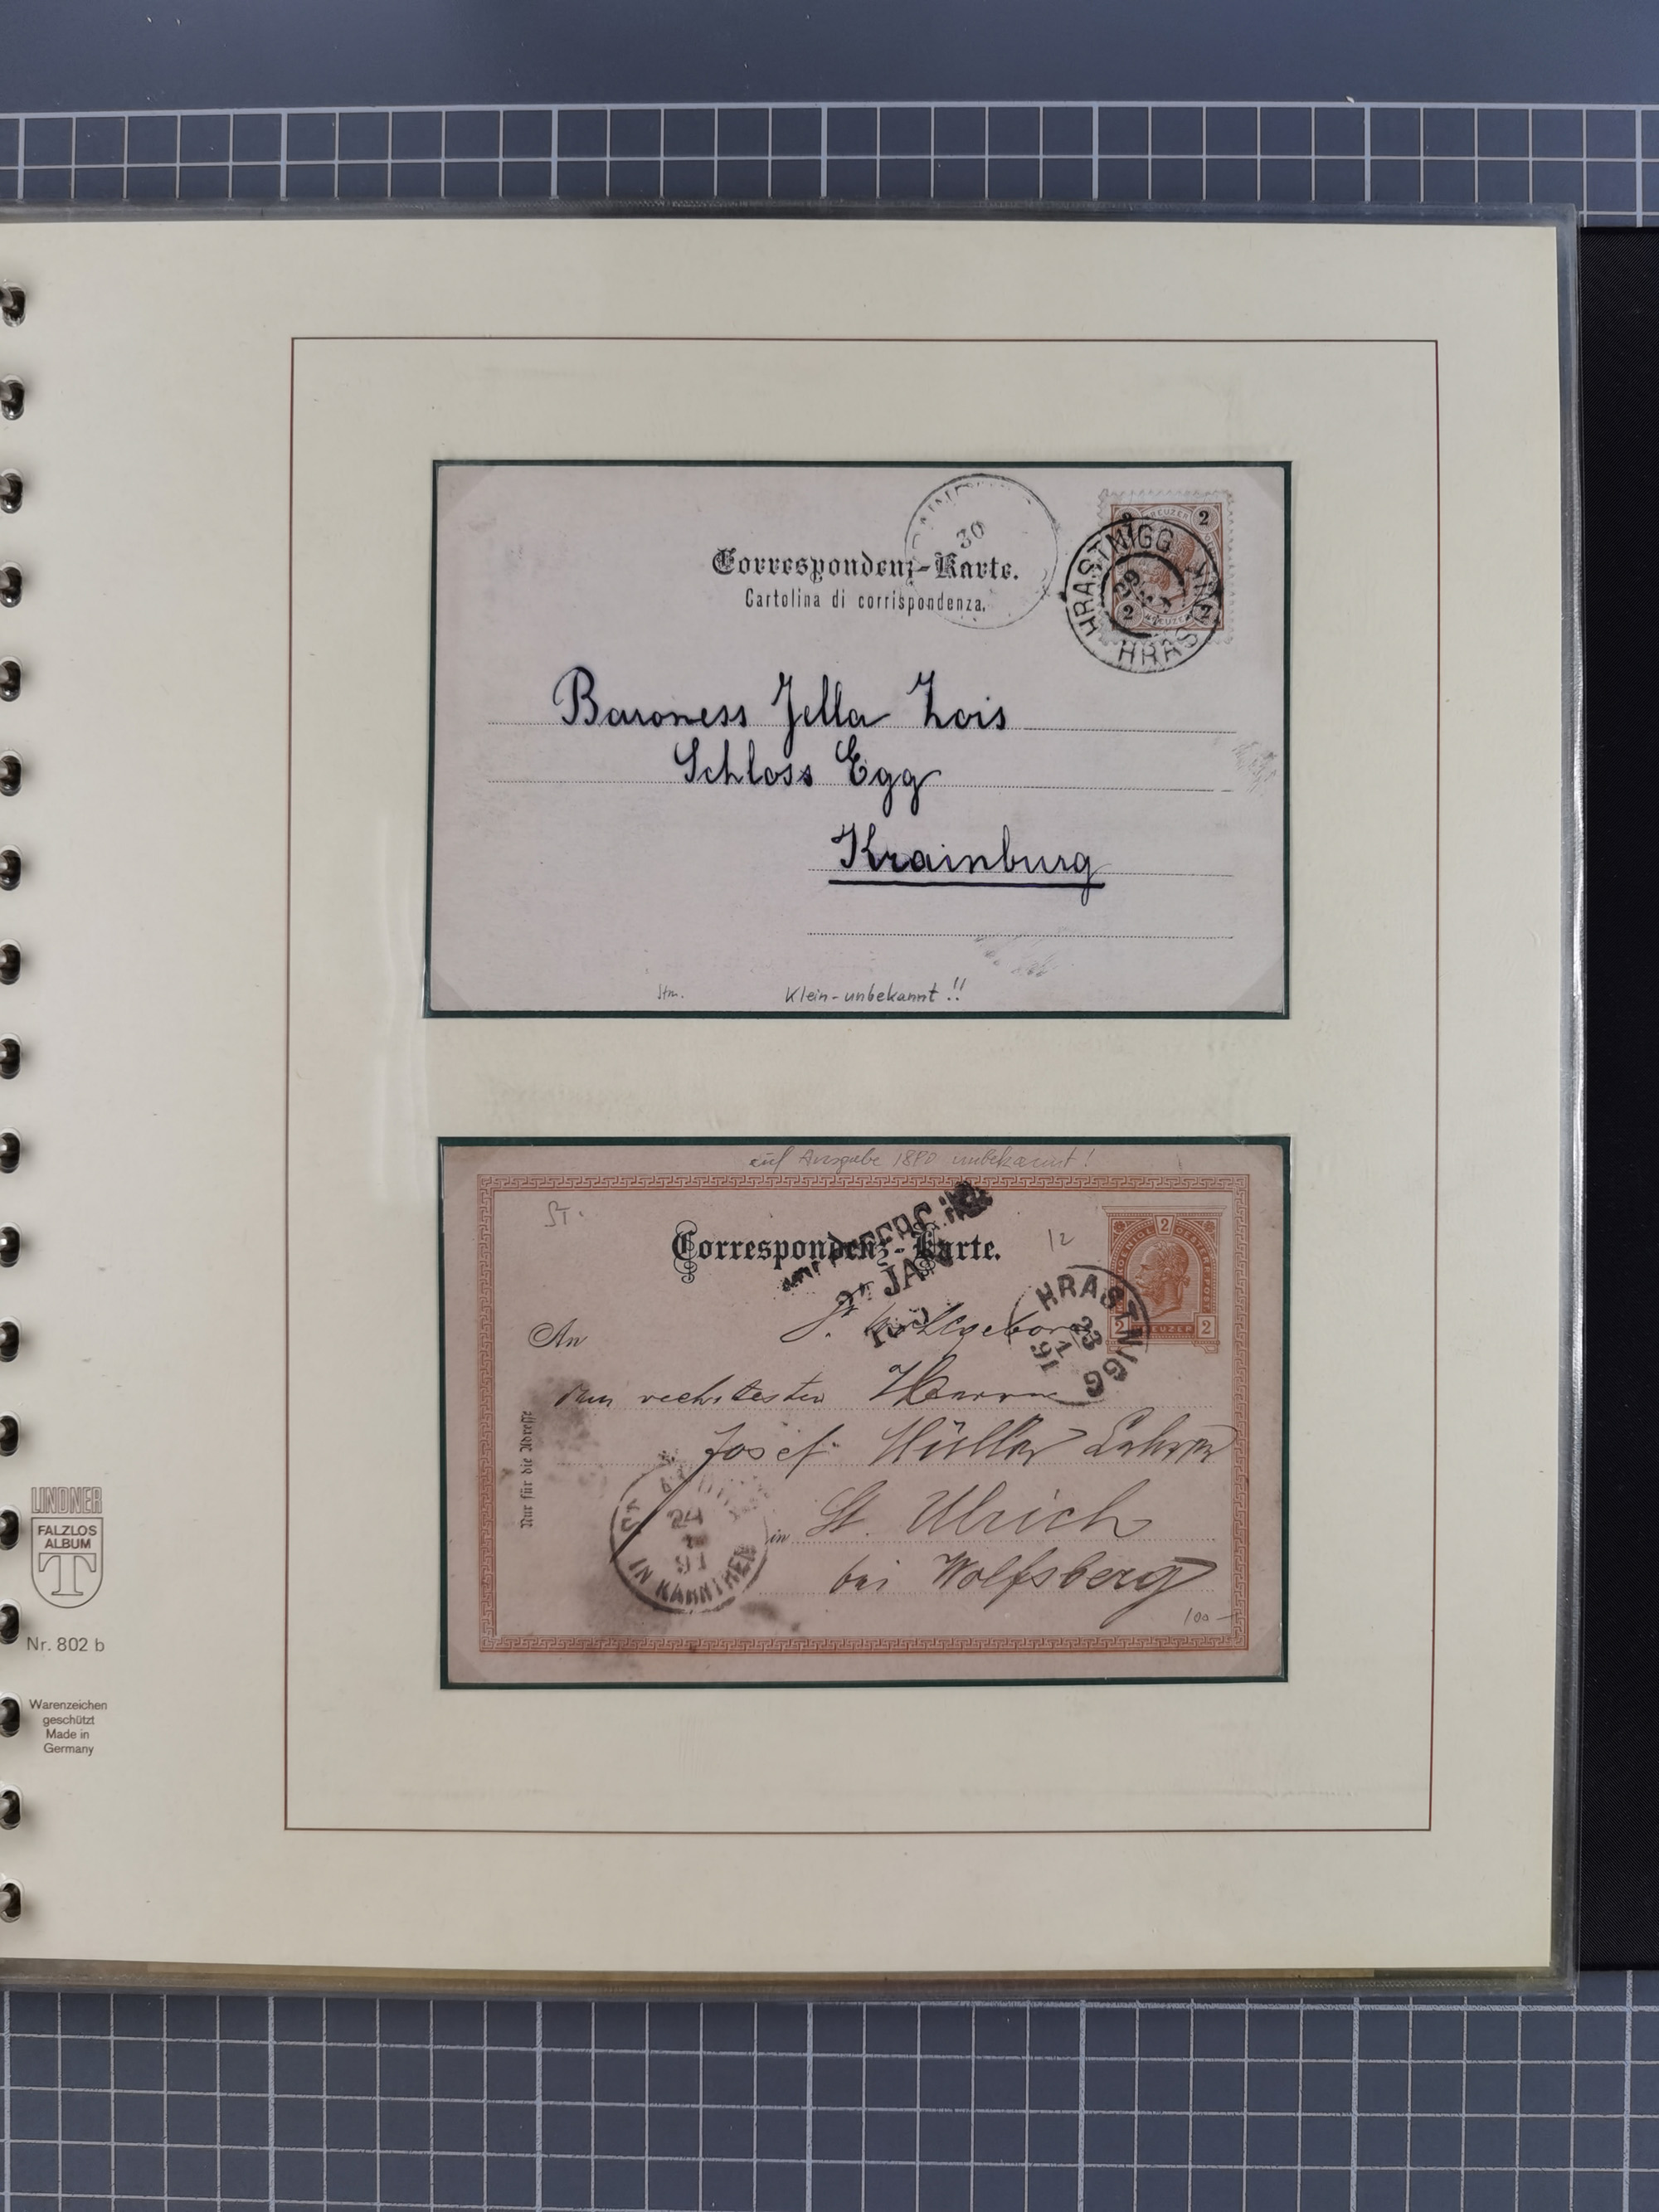 30
Correspondenz-Karte.
Cartolina di corrispondenza.
2 KREUZER 2
HRASTNIGG
29
HRAS
Baroness Jella Zois
Schloss Egg
Krainburg
Stm. Klein-unbekannt!!
auf Ausgabe 1890 unbekannt!
ST.
Correspondenz-Karte.
12
2
2 KREUZER 2
HRASTNIGG
23
1
91
JAN
An
Herrn
Josef Müller Lehrer
in St. Ulrich
bei Wolfsberg
Nur für die Adresse
24
1
91
IN KÄRNTEN
100-
LINDNER
FALZLOS
ALBUM
T
Nr. 802 b
Warenzeichen
geschützt
Made in
Germany